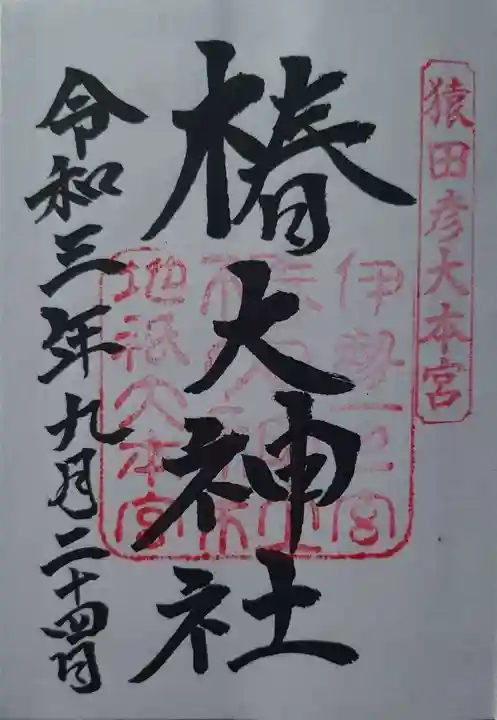 猿田彦大本宮
椿大神社
伊勢一之宮
地祇大本宮
令和三年九月二十四日